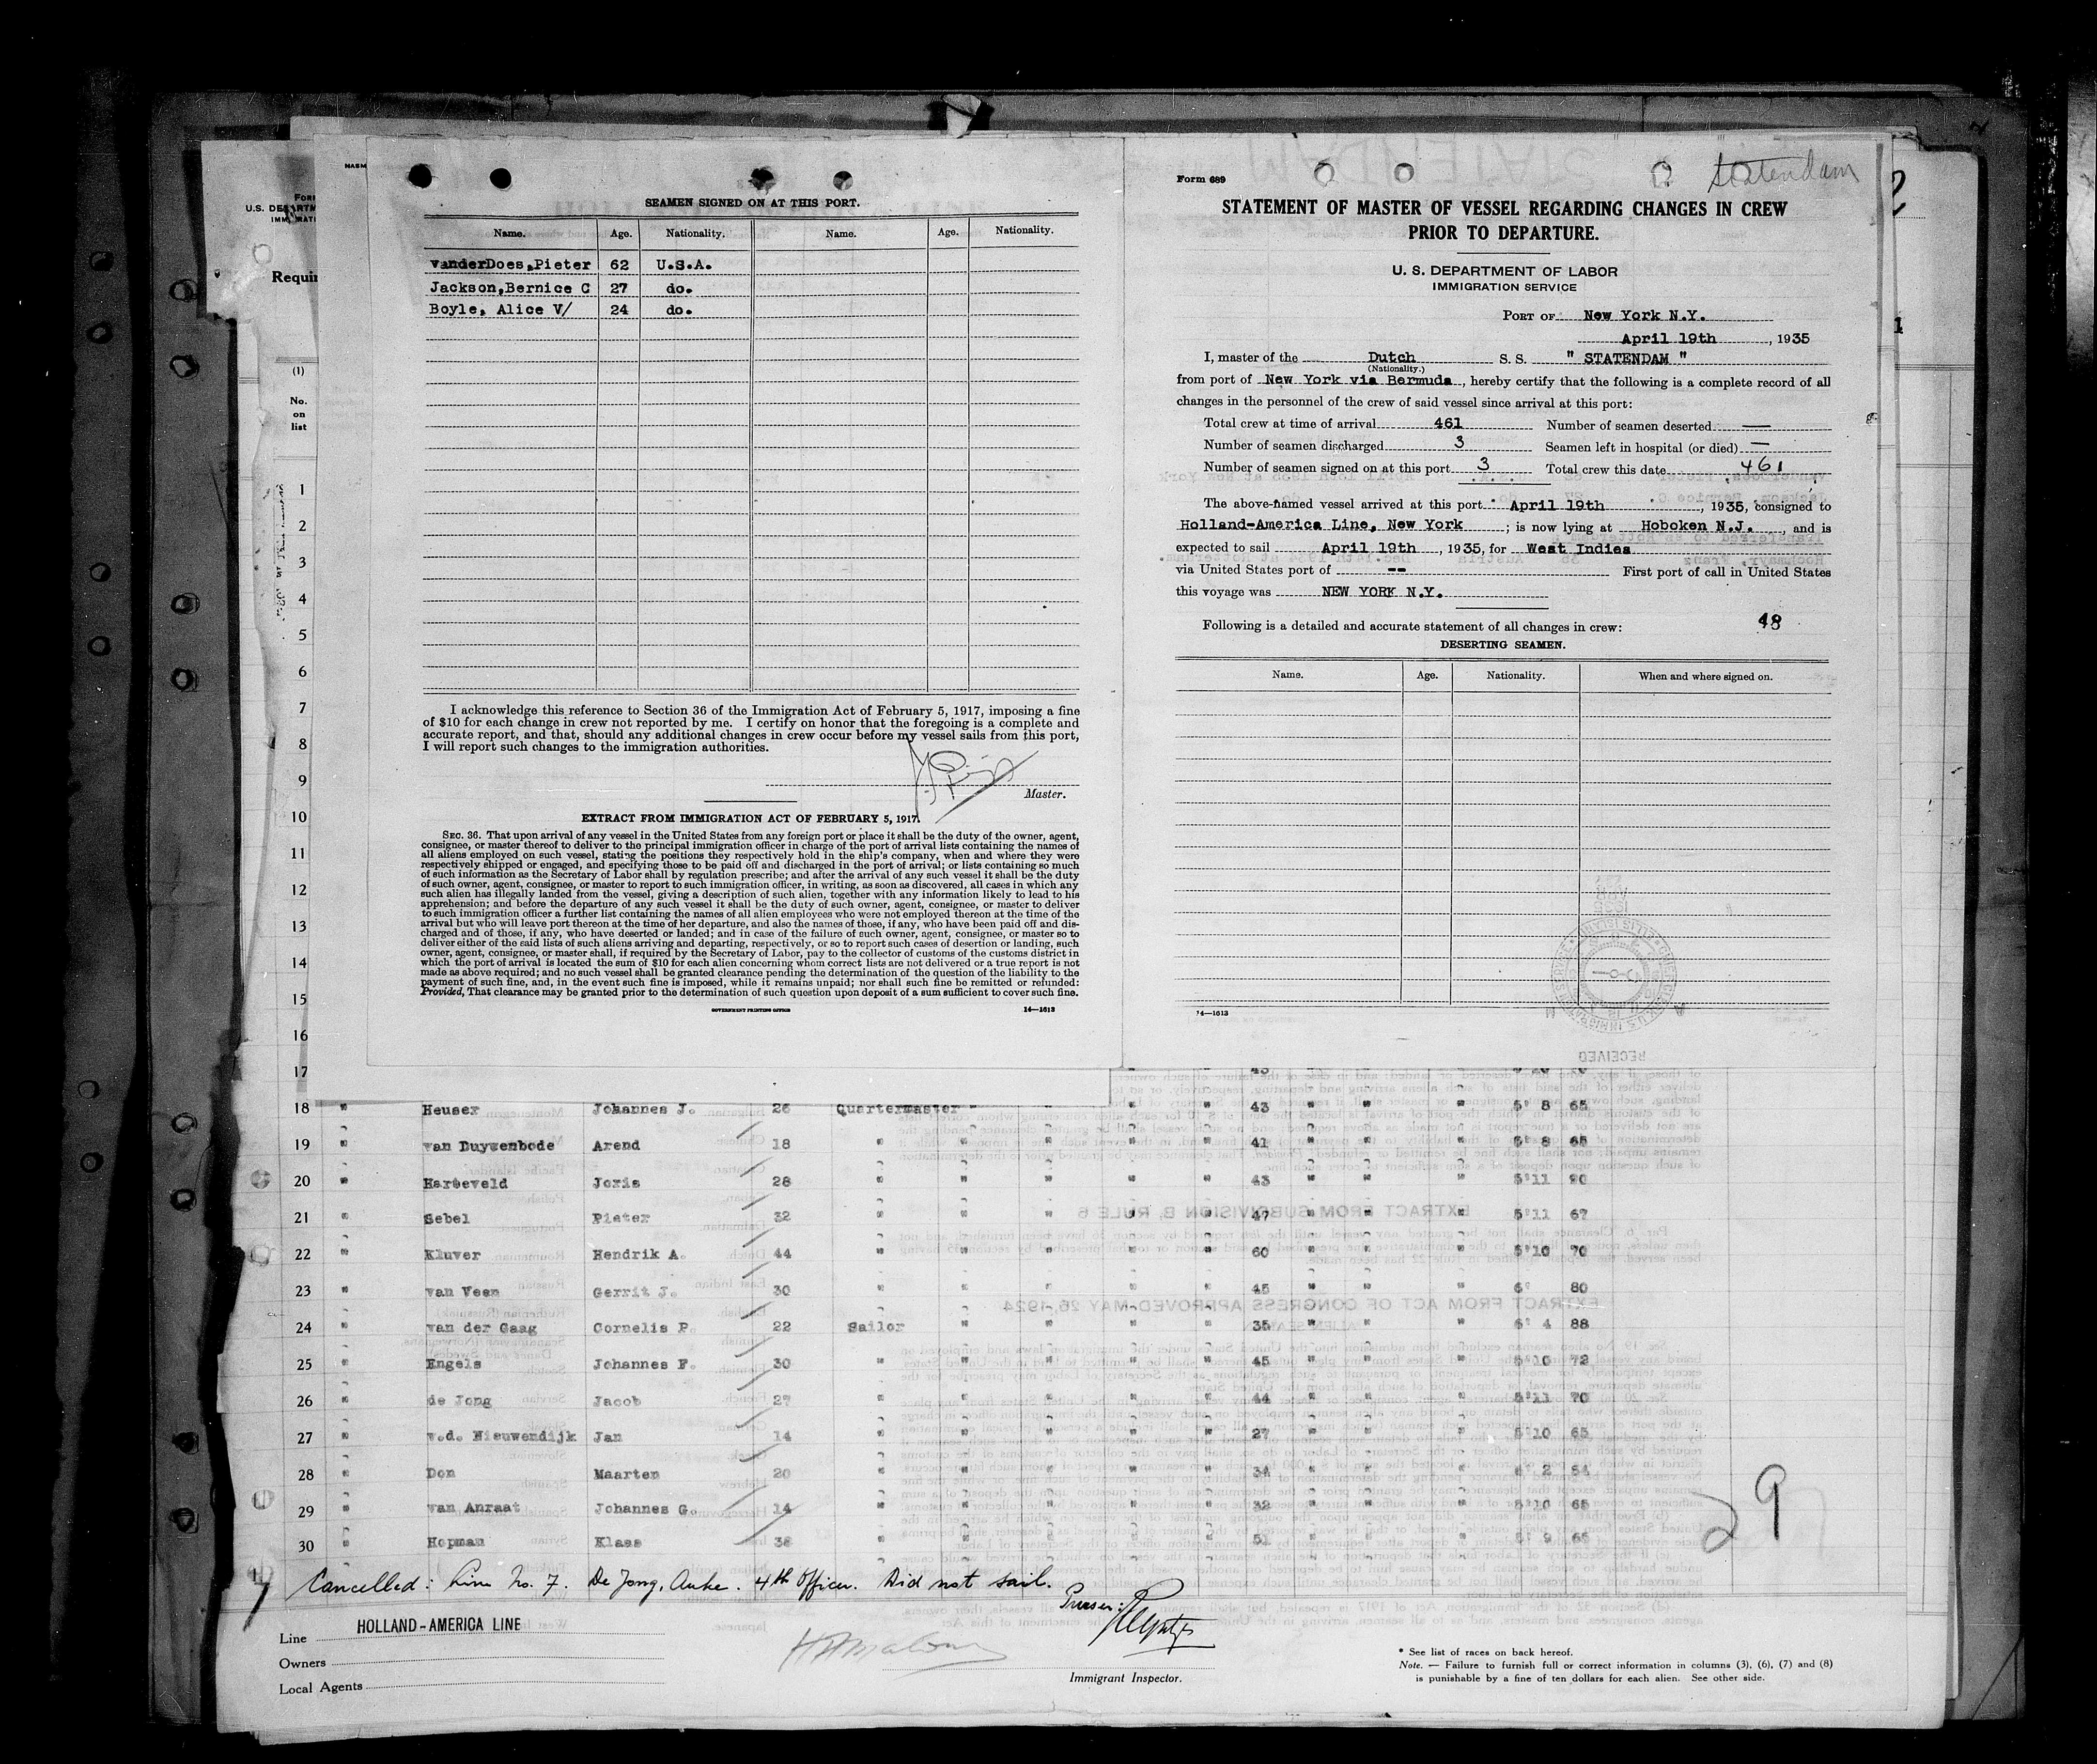 NASM
FORM
U.S. DEPARTM
IMMIGRATI
Requir
(1)
No.
on
list
SEAMEN SIGNED ON AT THIS PORT.
Name. Age. Nationality. Name. Age. Nationality.
vanderDoes,Pieter 62 U.S.A.
Jackson,Bernice C 27 do.
Boyle, Alice V/ 24 do.
I acknowledge this reference to Section 36 of the Immigration Act of February 5, 1917, imposing a fine
of $10 for each change in crew not reported by me. I certify on honor that the foregoing is a complete and
accurate report, and that, should any additional changes in crew occur before my vessel sails from this port,
I will report such changes to the immigration authorities.
Master.
EXTRACT FROM IMMIGRATION ACT OF FEBRUARY 5, 1917.
SEC. 36. That upon arrival of any vessel in the United States from any foreign port or place it shall be the duty of the owner, agent,
consignee, or master thereof to deliver to the principal immigration officer in charge of the port of arrival lists containing the names of
all aliens employed on such vessel, stating the positions they respectively hold in the ship's company, when and where they were
respectively shipped or engaged, and specifying those to be paid off and discharged in the port of arrival; or lists containing so much
of such information as the Secretary of Labor shall by regulation prescribe; and after the arrival of any such vessel it shall be the duty
of such owner, agent, consignee, or master to report to such immigration officer, in writing, as soon as discovered, all cases in which any
such alien has illegally landed from the vessel, giving a description of such alien, together with any information likely to lead to his
apprehension; and before the departure of any such vessel it shall be the duty of such owner, agent, consignee, or master to deliver
to such immigration officer a further list containing the names of all alien employees who were not employed thereon at the time of the
arrival but who will leave port thereon at the time of her departure, and also the names of those, if any, who have been paid off and dis-
charged and of those, if any, who have deserted or landed; and in case of the failure of such owner, agent, consignee, or master so to
deliver either of the said lists of such aliens arriving and departing, respectively, or so to report such cases of desertion or landing, such
owner, agent, consignee, or master shall, if required by the Secretary of Labor, pay to the collector of customs of the customs district in
which the port of arrival is located the sum of $10 for each alien concerning whom correct lists are not delivered or a true report is not
made as above required; and no such vessel shall be granted clearance pending the determination of the question of the liability to the
payment of such fine, and, in the event such fine is imposed, while it remains unpaid; nor shall such fine be remitted or refunded:
Provided, That clearance may be granted prior to the determination of such question upon deposit of a sum sufficient to cover such fine.
GOVERNMENT PRINTING OFFICE 14—1613
Form 689
Statendam
STATEMENT OF MASTER OF VESSEL REGARDING CHANGES IN CREW
PRIOR TO DEPARTURE.
U. S. DEPARTMENT OF LABOR
IMMIGRATION SERVICE
PORT OF New York N.Y.
April 19th, 1935
I, master of the Dutch S. S. " STATENDAM "
(Nationality.)
from port of New York via Bermuda, hereby certify that the following is a complete record of all
changes in the personnel of the crew of said vessel since arrival at this port:
Total crew at time of arrival 461 Number of seamen deserted —
Number of seamen discharged 3 Seamen left in hospital (or died) —
Number of seamen signed on at this port 3 Total crew this date 461
The above-named vessel arrived at this port April 19th, 1935, consigned to
Holland-America Line, New York; is now lying at Hoboken N.J., and is
expected to sail April 19th, 1935, for West Indies
via United States port of -- First port of call in United States
this voyage was NEW YORK N.Y.
Following is a detailed and accurate statement of all changes in crew: 48
DESERTING SEAMEN.
Name. Age. Nationality. When and where signed on.
14—1613
RECEIVED
1
2
3
4
5
6
7
8
9
10
11
12
13
14
15
16
17 43
18 " Heuser Johannes J. 26 Quartermaster " " " " 43 " " " 5' 8 65
19 " van Duyvenbode Arend 18 " " " " " 41 " " " 5' 8 65
20 " Harteveld Joris 28 " " " " " 43 " " " 5'11 90
21 " Sebel Pieter 32 " " " " " 47 " " " 5'11 67
22 " Kluver Hendrik A. 44 " " " " " 60 " " " 5'10 70
23 " van Veen Gerrit J. 30 " " " " " 45 " " " 6' 80
24 " van der Gaag Cornelis P. 22 Sailor " " " " 35 " " " 6' 4 88
25 " Engels Johannes F. 30 " " " " " 45 " " " 5'10 72
26 " de Jong Jacob 27 " " " " " 44 " " " 5'11 70
27 " v.d. Nieuwendijk Jan 14 " " " " " 27 " " " 5'10 65
28 " Don Maarten 20 " " " " " 34 " " " 6' 2 84
29 " van Anraat Johannes G. 14 " " " " " 32 " " " 5'10 65
30 " Hopman Klaas 38 " " " " " 51 " " " 5' 9 65
29
Cancelled: Line No. 7. De Jong, Auke. 4th Officer. Did not sail.
Purser:
Line HOLLAND-AMERICA LINE
Owners
Local Agents
Immigrant Inspector.
* See list of races on back hereof.
Note. — Failure to furnish full or correct information in columns (3), (6), (7) and (8)
is punishable by a fine of ten dollars for each alien. See other side.